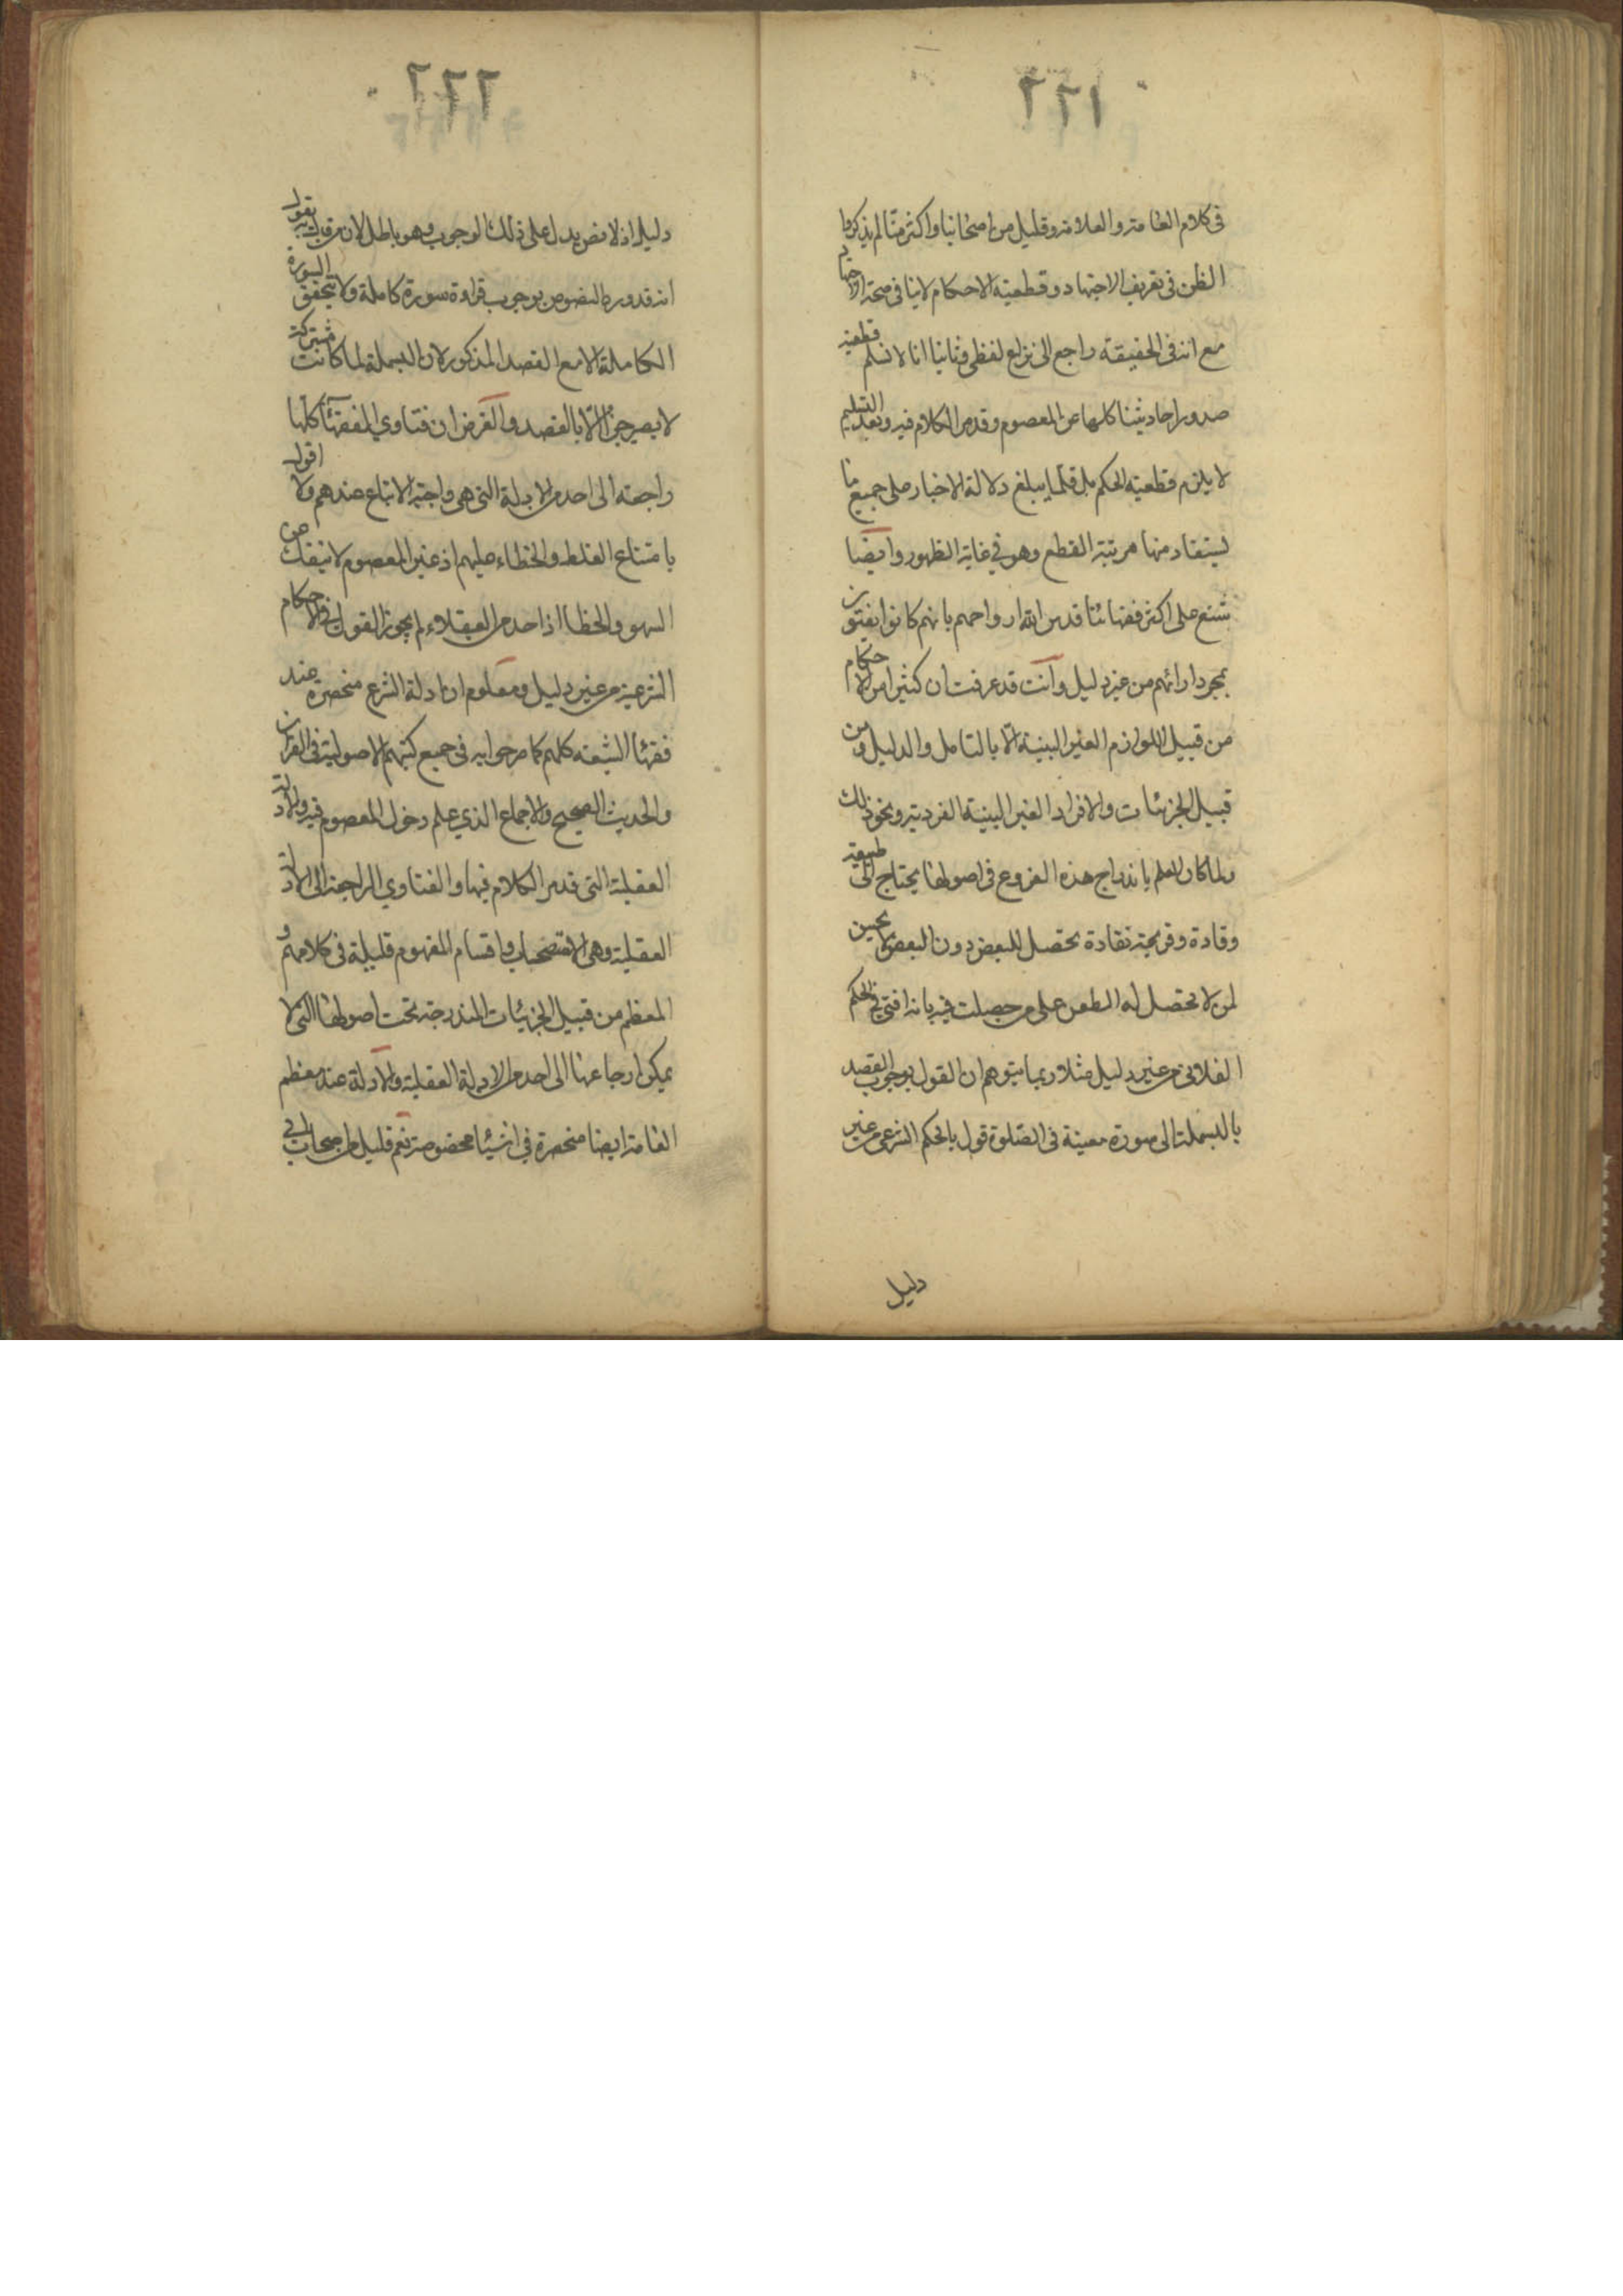 ٢٢١
في كلام العامة والعلامة وقليل من اصحابنا واكثر منا لم يذكروا
الظن في تعريف الاجتهاد وقطعية الاحكام لاينافي صحة الاجتهاد
مع انه في الحقيقة راجع الى نزاع لفظي وثانيا انا لا نسلم قطعية
صدور احاديثنا كلها عن المعصوم وقد مر الكلام فيه وبعد التسليم
لا يلزم قطعية الحكم بل قلما يبلغ دلالة الاخبار على جميع ما
يستفاد منها مرتبة القطع وهو في غاية الظهور وايضا
شنع على اكثر فقهائنا قدس الله ارواحهم بانهم كانوا يفتون
بمجرد ارائهم من غير دليل وانت قد عرفت ان كثيرا من الاحكام
من قبيل اللوازم الغير البينة الا بالتامل والدليل ومن
قبيل الجزئيات والافراد الغير البينة الفردية ونحو ذلك
ولما كان العلم باندراج هذه الفروع في اصولها يحتاج الى طبيعة
وقادة وقريحة نقادة تحصل للبعض دون البعض لا يحسن
لمن لا تحصل له الطعن على من حصلت فيه بانه افتى في الحكم
الفلاني من غير دليل مثلا ربما يتوهم ان القول بوجوب القصد
بالبسملة الى سورة معينة في الصلوة قول بالحكم الشرعي من غير
دليل
٢٢٢
دليل اذ لا نص يدل على ذلك الوجوب وهو باطل لان من قال به يقول
انه قد ورد النصوص بوجوب قراءة سورة كاملة ولا يتحقق السورة
الكاملة الا مع القصد المذكور لان البسملة لما كانت مشتركة
لا يصير جزءا الا بالقصد والغرض ان فتاوي الفقهاء كلها
راجعة الى احد من الادلة التي هي واجبة الاتباع عندهم ولا اقول
بامتناع الغلط والخطاء عليهم اذ غير المعصوم لا ينفك عن
السهو والخطا اذ احد من العقلاء لم يجوز القول في الاحكام
الشرعية من غير دليل ومعلوم ان ادلة الشرع منحصرة عند
فقهاء الشيعة كلهم كما صرحوا به في جميع كتبهم الاصولية في القران
والحديث الصحيح والاجماع الذي علم دخول المعصوم فيه والادلة
العقلية التي قد مر الكلام فيها والفتاوي الراجعة الى الادلة
العقلية وهي الاستصحاب واقسام المفهوم قليلة في كلامهم و
المعظم من قبيل الجزئيات المندرجة تحت اصولها التي لا
يمكن ارجاعها الى احد من الادلة العقلية والادلة عند معظم
العامة ايضا منحصرة في اشياء مخصوصة نعم قليل من اصحاب